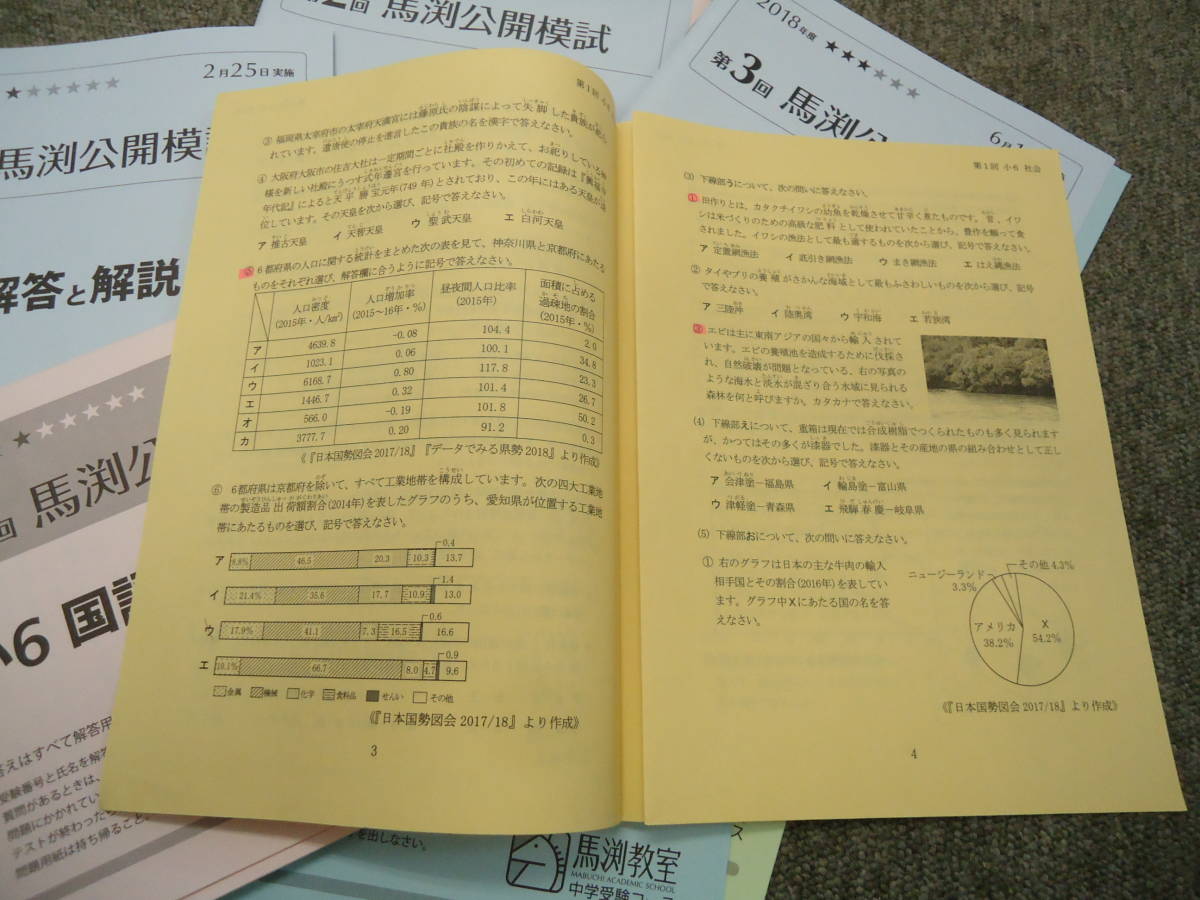 馬渕公開模試
2018年度
第3回 馬渕公
2月25日実施
馬渕公開模
解答と解説
馬渕公
第1回 小6
③ 福岡県太宰府市の太宰府天満宮には藤原氏の陰謀によって失脚した貴族が
れています。遣唐使の停止を進言したこの貴族の名を漢字で答えなさい。
④ 大阪府大阪市の住吉大社は一定期間ごとに社殿を作りかえて、お祀りしている神
様を新しい社殿にうつす式年遷宮を行っています。その初めての記録は『興福寺
年代記』によると天平勝宝元年(749年)とされており、この年にはある天皇が
位しています。その天皇を次から選び、記号で答えなさい。
ア 推古天皇 イ 天智天皇 ウ 聖武天皇 エ 白河天皇
⑤ 6都府県の人口に関する統計をまとめた次の表を見て、神奈川県と京都府にあたる
ものをそれぞれ選び、解答欄に合うように記号で答えなさい。
人口密度 (2015年・人/km²) 人口増加率 (2015~16年・%) 昼夜間人口比率 (2015年) 面積に占める過疎地の割合 (2015年・%)
ア 4639.8 -0.08 104.4 2.0
イ 1023.1 0.06 100.1 34.8
ウ 6168.7 0.80 117.8 23.3
エ 1446.7 0.32 101.4 26.7
オ 566.0 -0.19 101.8 50.2
カ 3777.7 0.20 91.2 0.3
(『日本国勢図会2017/18』『データでみる県勢2018』より作成)
⑥ 6都府県は京都府を除いて、すべて工業地帯を構成しています。次の四大工業地
帯の製造品出荷額割合(2014年)を表したグラフのうち、愛知県が位置する工業地
帯にあたるものを選び、記号で答えなさい。
0.4
ア 8.8% 46.5 20.3 10.3 13.7
1.4
イ 21.4% 35.6 17.7 10.9 13.0
0.6
ウ 17.9% 41.1 7.3 16.5 16.6
0.9
エ 10.1% 66.7 8.0 4.7 9.6
金属 機械 化学 食料品 せんい その他
(『日本国勢図会2017/18』より作成)
3
第1回 小6 社会
(3) 下線部うについて、次の問いに答えなさい。
① 田作りとは、カタクチイワシの幼魚を乾燥させて甘辛く煮たものです。昔、イワ
シは米づくりのための高級な肥料として使われていたことから、豊作を願って食
されました。イワシの漁法として最も適するものを次から選び、記号で答えなさい。
ア 定置網漁法 イ 底引き網漁法 ウ まき網漁法 エ はえ縄漁法
② タイやブリの養殖がさかんな海域として最もふさわしいものを次から選び、記号
で答えなさい。
ア 三陸沖 イ 陸奥湾 ウ 宇和海 エ 若狭湾
③ エビは主に東南アジアの国々から輸入されて
います。エビの養殖池を造成するために伐採さ
れ、自然破壊が問題となっている、右の写真の
ような海水と淡水が混ざり合う水域に見られる
森林を何と呼びますか。カタカナで答えなさい。
(4) 下線部えについて、重箱は現在では合成樹脂でつくられたものも多く見られます
が、かつてはその多くが漆器でした。漆器とその産地の県の組み合わせとして正し
くないものを次から選び、記号で答えなさい。
ア 会津塗-福島県 イ 輪島塗-富山県
ウ 津軽塗-青森県 エ 飛騨春慶-岐阜県
(5) 下線部おについて、次の問いに答えなさい。
① 右のグラフは日本の主な牛肉の輸入
相手国とその割合(2016年)を表してい
ます。グラフ中Xにあたる国の名を答
えなさい。
ニュージーランド 3.3%
その他 4.3%
アメリカ 38.2%
X 54.2%
(『日本国勢図会2017/18』より作成)
4
6 国語
受験番号と氏名を解答
質問があるときは、
問題にかかれてい
テストが終わったら
問題用紙は持ち帰ること。
を出しなさい。
馬渕教室
MABUCHI ACADEMIC SCHOOL
中学受験コース